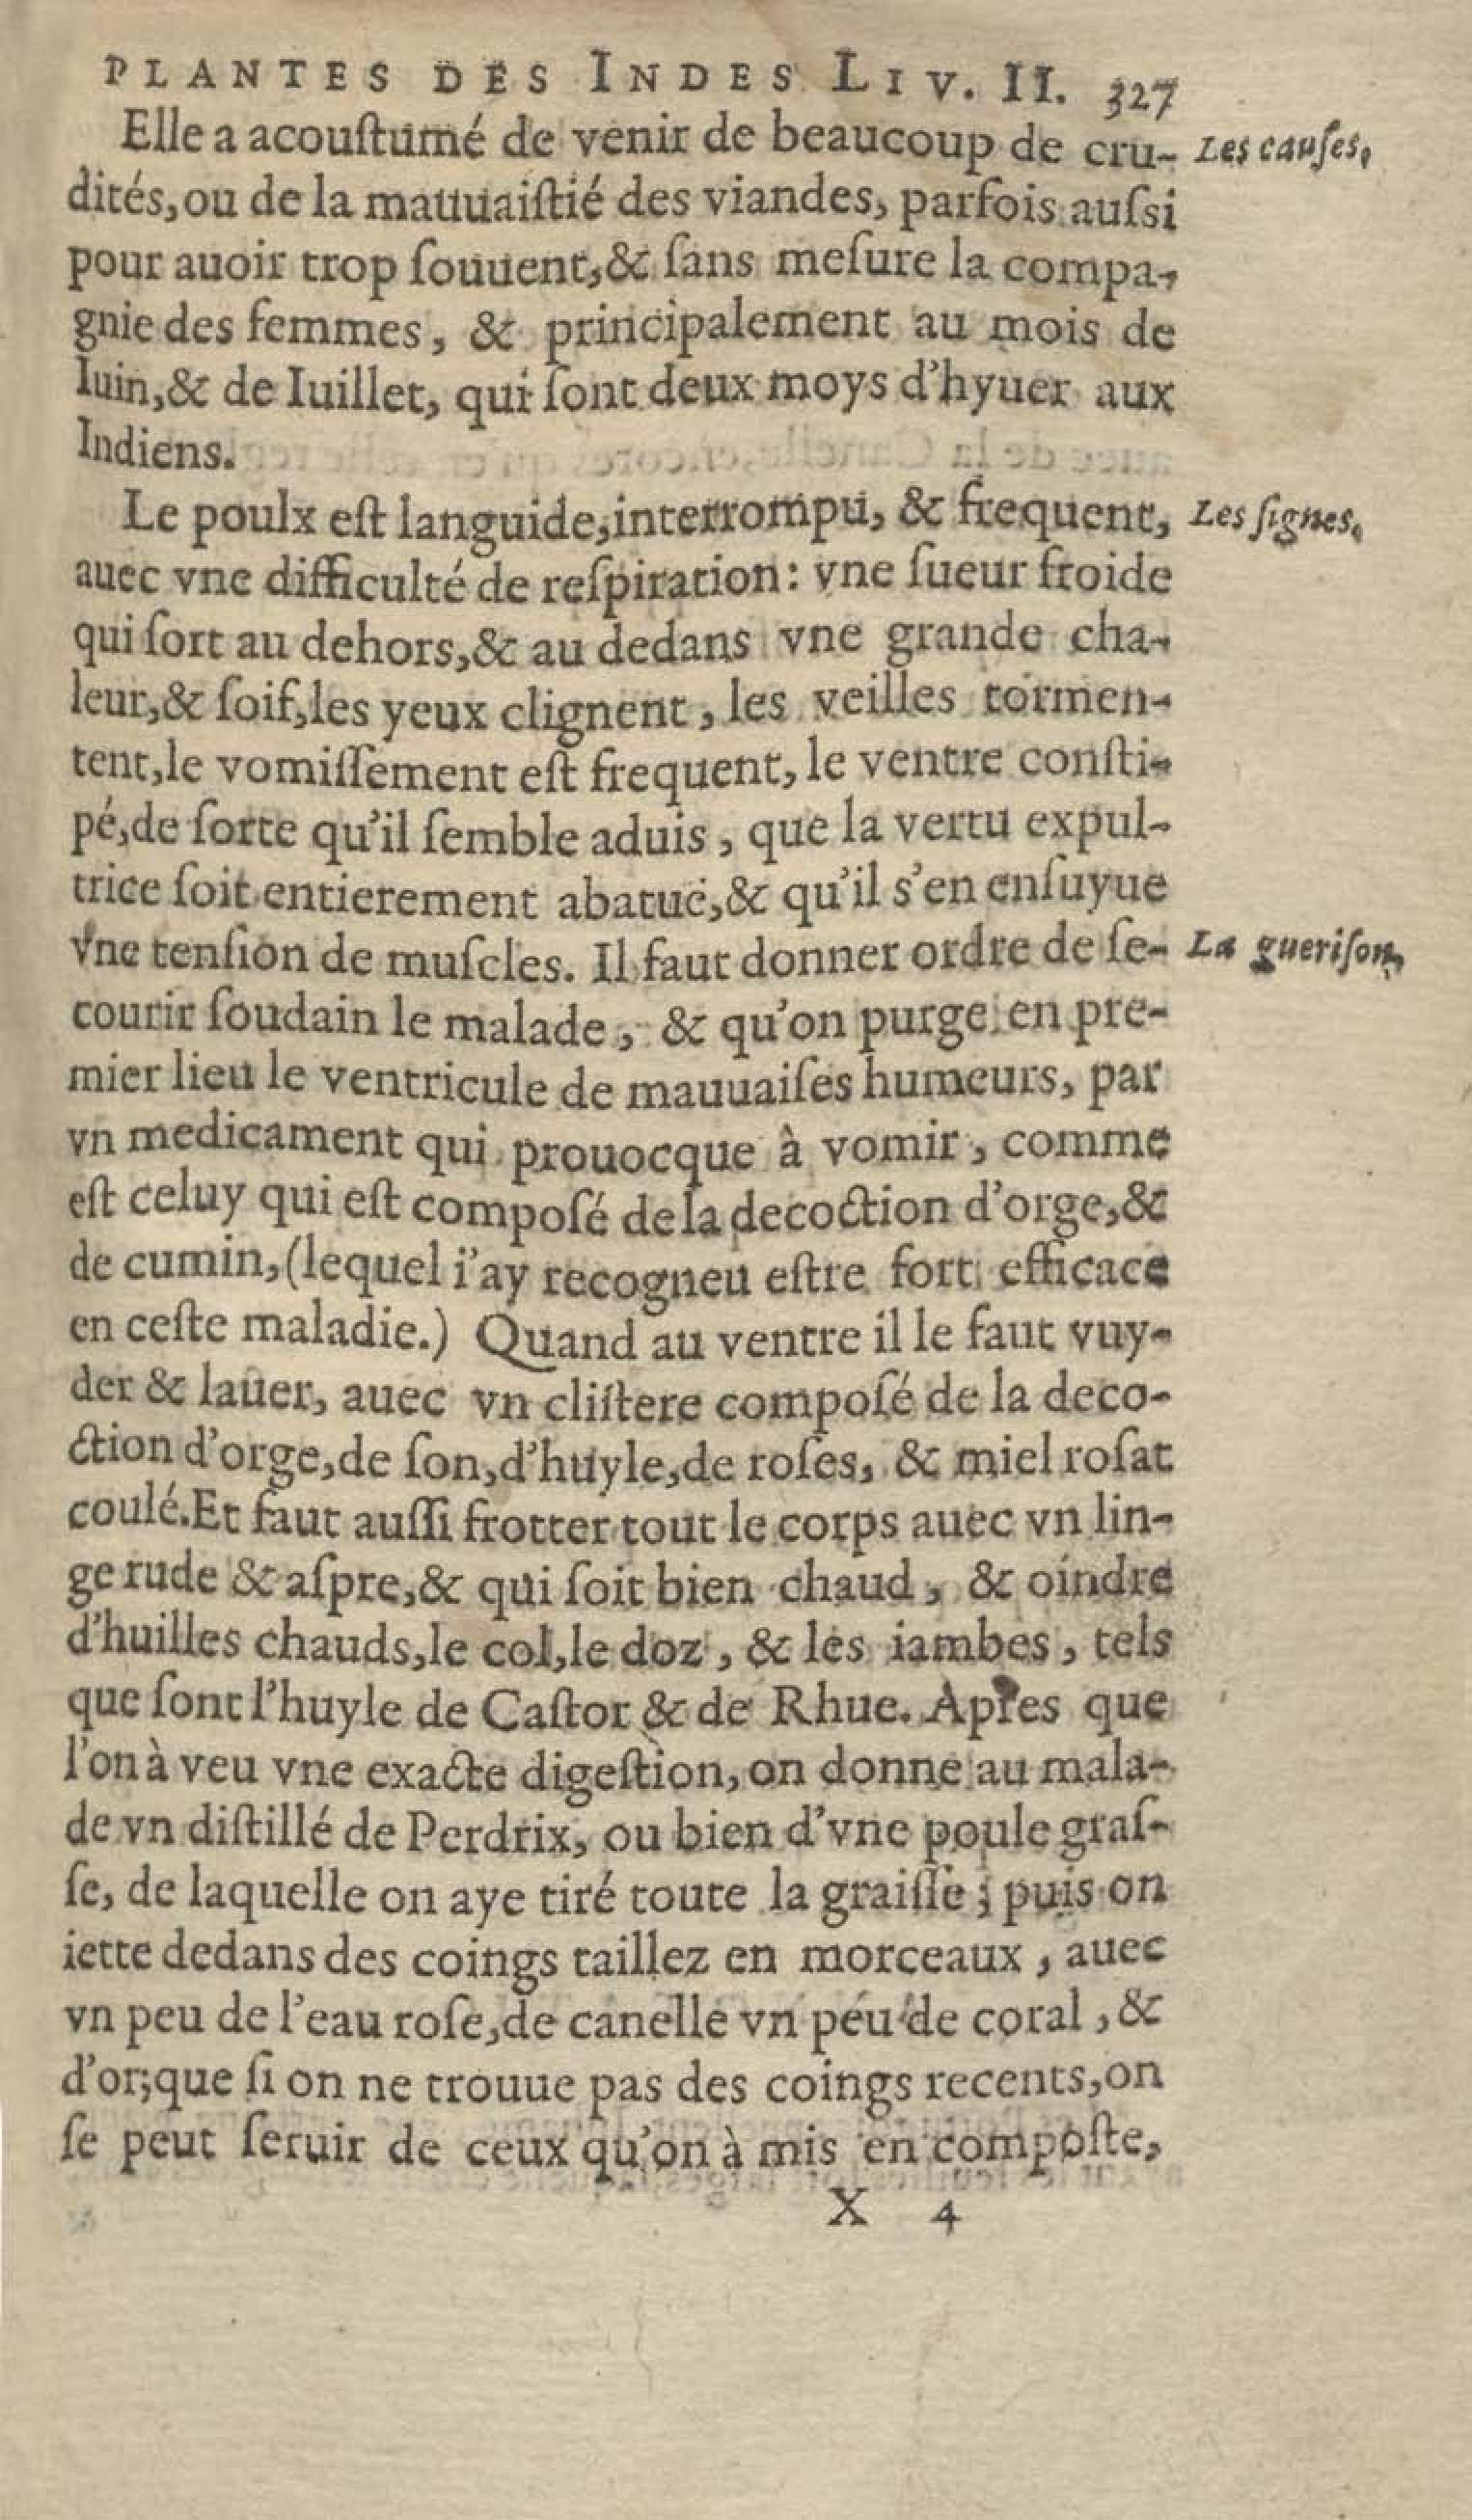 PLANTES DES INDES LIV. II. 327
Elle a acouſtumé de venir de beaucoup de cru-
Les cauſes.
dités, ou de la mauuaiſtié des viandes, parfois auſsi
pour auoir trop ſouuent, & ſans meſure la compa-
gnie des femmes, & principalement au mois de
Iuin, & de Iuillet, qui ſont deux moys d'hyuer aux
Indiens.
Le poulx eſt languide, interrompu, & frequent,
Les ſignes.
auec vne difficulté de reſpiration: vne ſueur froide
qui ſort au dehors, & au dedans vne grande cha-
leur, & ſoif, les yeux clignent, les veilles tormen-
tent, le vomiſſement eſt frequent, le ventre conſti-
pé, de ſorte qu'il ſemble aduis, que la vertu expul-
trice ſoit entierement abatué, & qu'il s'en enſuyue
vne tenſion de muſcles. Il faut donner ordre de ſe-
La gueriſon.
courir ſoudain le malade, & qu'on purge en pre-
mier lieu le ventricule de mauuaiſes humeurs, par
vn medicament qui prouocque à vomir, comme
eſt celuy qui eſt compoſé de la decoction d'orge, &
de cumin, (lequel i'ay recogneu eſtre fort efficace
en ceſte maladie.) Quand au ventre il le faut vuy-
der & lauer, auec vn cliſtere compoſé de la deco-
ction d'orge, de ſon, d'huyle, de roſes, & miel roſat
coulé. Et faut auſſi frotter tout le corps auec vn lin-
ge rude & aſpre, & qui ſoit bien chaud, & oindre
d'huilles chauds, le col, le doz, & les iambes, tels
que ſont l'huyle de Caſtor & de Rhue. Apres que
l'on à veu vne exacte digeſtion, on donne au mala-
de vn diſtillé de Perdrix, ou bien d'vne poule graſ-
ſe, de laquelle on aye tiré toute la graiſſe; puis on
iette dedans des coings taillez en morceaux, auec
vn peu de l'eau roſe, de canelle vn peu de coral, &
d'or; que ſi on ne trouue pas des coings recents, on
ſe peut ſeruir de ceux qu'on à mis en compoſte,
X 4